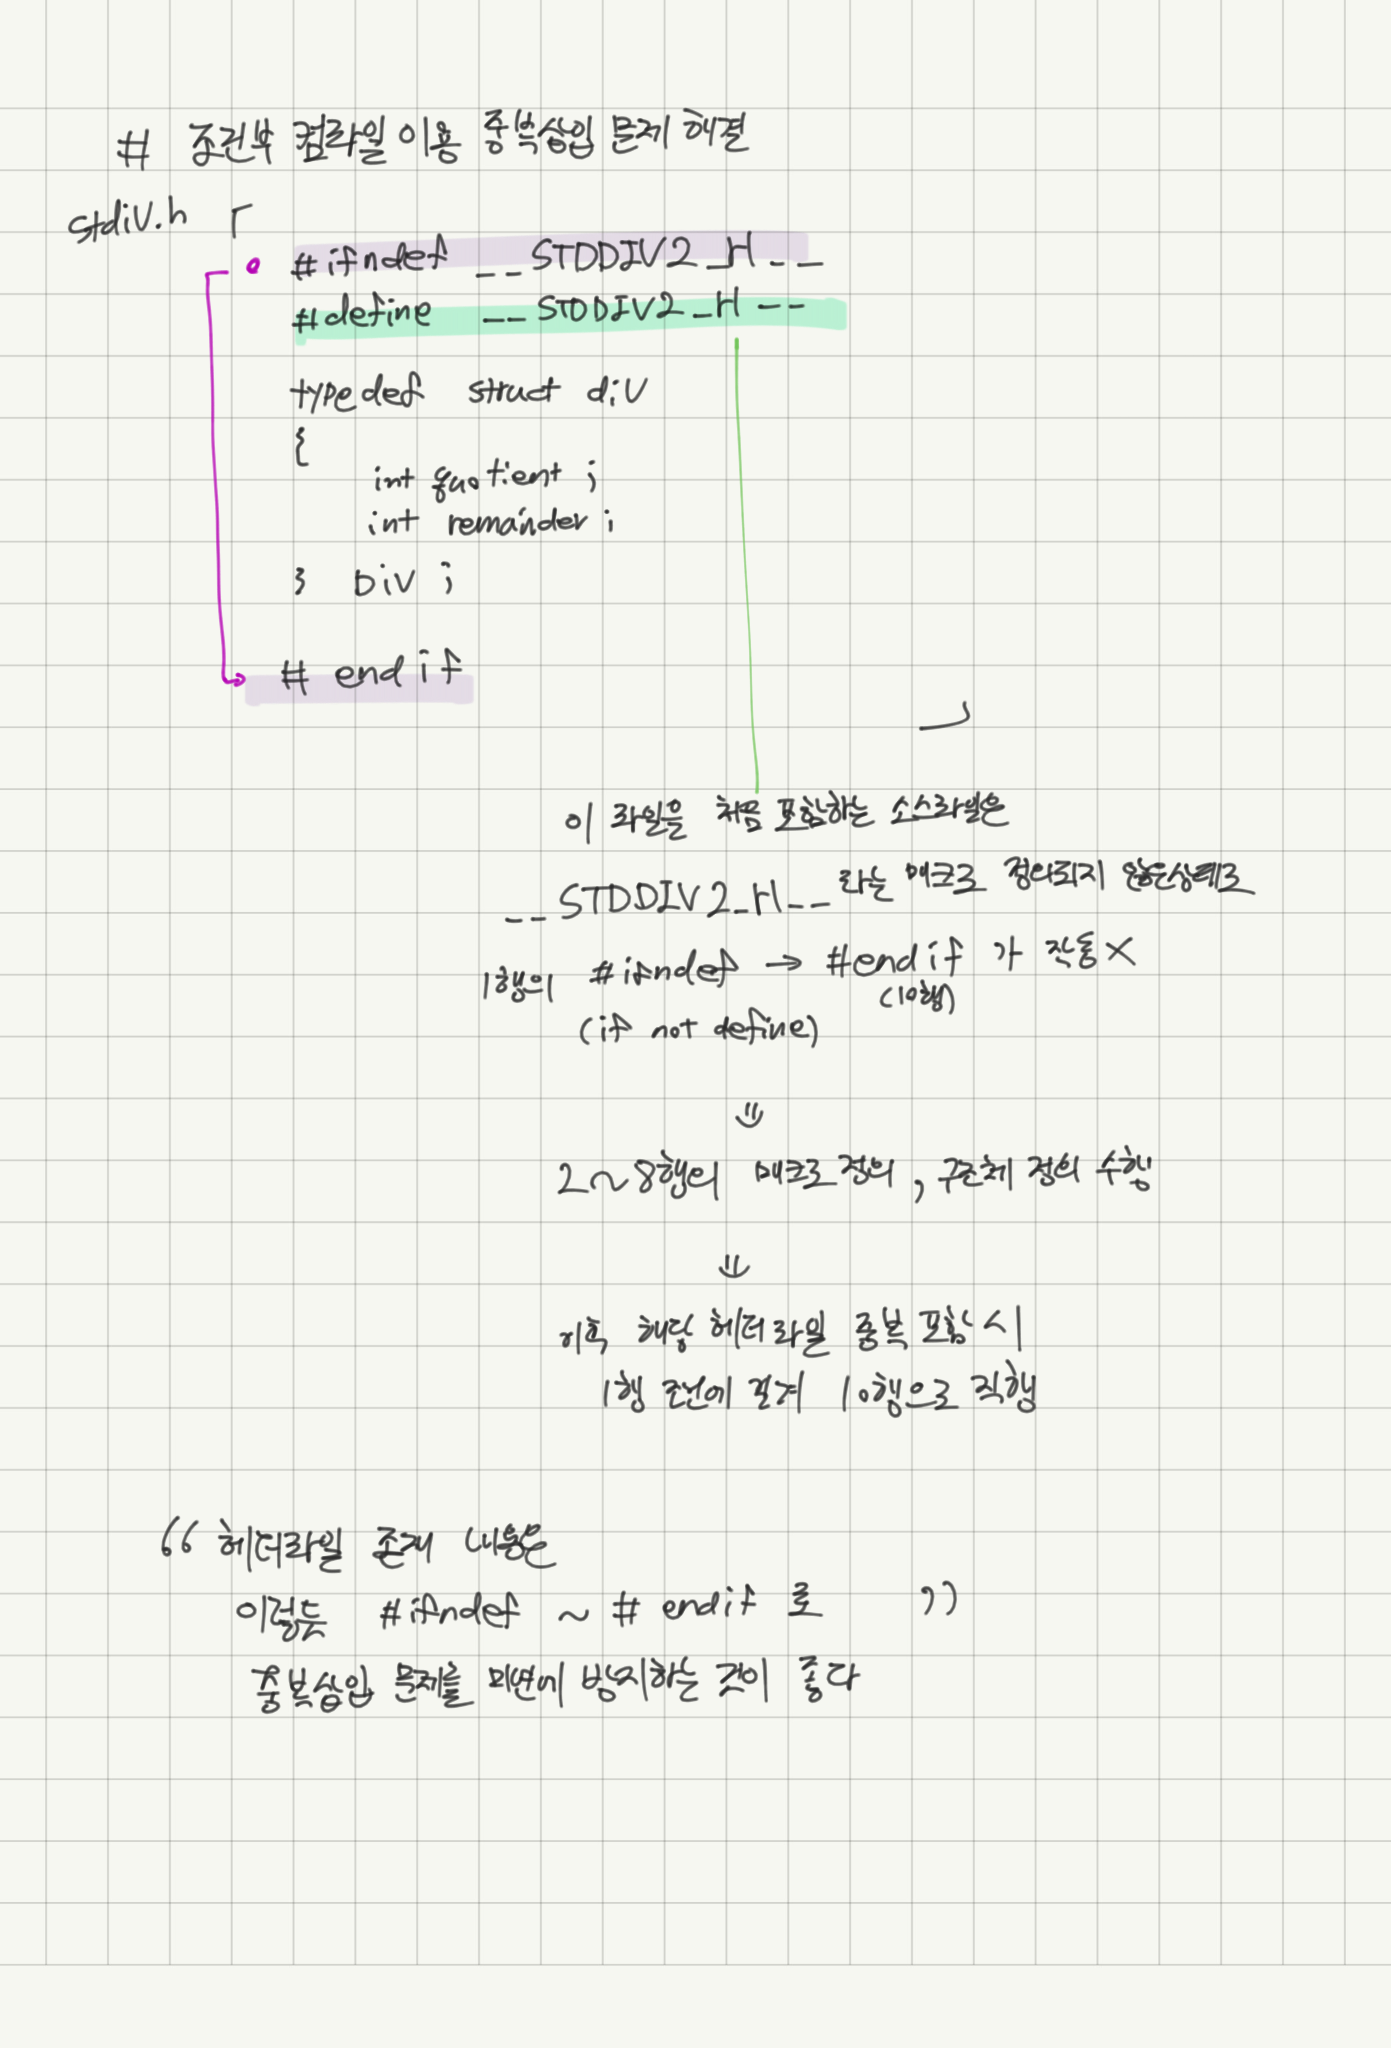 # 조건부 컴파일 이용 중복삽입 문제 해결
stdiv.h 「
#ifndef __STDDIV2_H__
#define __STDDIV2_H__
typedef struct div
{
int quotient ;
int remainder ;
} Div ;
# endif
」
이 파일을 처음 포함하는 소스파일은
__STDDIV2_H__ 라는 매크로 정의되지 않은상태로
1행의 #ifndef → #endif 가 작동 X
(10행)
(if not define)
⇓
2~8행의 매크로 정의, 구조체 정의 수행
⇓
이후 해당 헤더파일 중복 포함 시
1행 조건에 걸려 10행으로 직행
“ 헤더파일 존재 내용은
이렇듯 #ifndef ~ # endif 로 ”
중복삽입 문제를 미연에 방지하는 것이 좋다